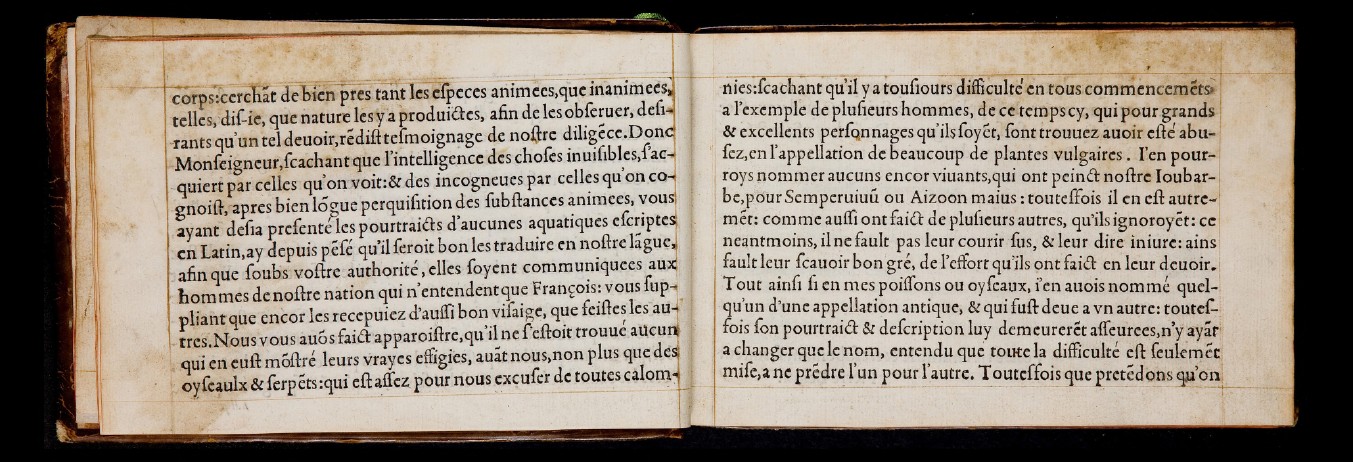 corps:cerchãt de bien pres tant les eſpeces animees,que inanimees,
telles, diſ-ie, que nature les y a produictes, afin de les obſeruer, deſi-
rants qu'un tel deuoir,rẽdiſt teſmoignage de noſtre diligẽce.Donc
Monſeigneur,ſcachant que l'intelligence des choſes inuiſibles,ſ'ac-
quiert par celles qu'on voit:& des incogneues par celles qu'on co-
gnoiſt, apres bien lõgue perquiſition des ſubſtances animees, vous
ayant deſia preſenté les pourtraicts d'aucunes aquatiques eſcriptes
en Latin,ay depuis pẽſé qu'il ſeroit bon les traduire en noſtre lãgue,
afin que ſoubs voſtre authorité, elles ſoyent communiquees aux
hommes de noſtre nation qui n'entendent que François: vous ſup-
pliant que encor les recepuiez d'auſſi bon viſaige, que feiſtes les au-
tres.Nous vous auõs faict apparoiſtre,qu'il ne ſ'eſtoit trouué aucun
qui en euſt mõſtré leurs vrayes effigies, auãt nous,non plus que des
oyſeaulx & ſerpẽts:qui eſt aſſez pour nous excuſer de toutes calom-
nies:ſcachant qu'il y a touſiours difficulté en tous commencemẽts
a l'exemple de pluſieurs hommes, de ce temps cy, qui pour grands
& excellents perſonnages qu'ils ſoyẽt, ſont trouuez auoir eſté abu-
ſez,en l'appellation de beaucoup de plantes vulgaires. I'en pour-
roys nommer aucuns encor viuants,qui ont peinct noſtre Ioubar-
be,pour Semperuiuũ ou Aizoon maius : touteſſois il en eſt autre-
mẽt: comme auſſi ont faict de pluſieurs autres, qu'ils ignoroyẽt: ce
neantmoins, il ne fault pas leur courir ſus, & leur dire iniure: ains
fault leur ſcauoir bon gré, de l'effort qu'ils ont faict en leur deuoir.
Tout ainſi ſi en mes poiſſons ou oyſeaux, i'en auois nommé quel-
qu'un d'une appellation antique, & qui fuſt deue a vn autre: touteſ-
fois ſon pourtraict & deſcription luy demeurerẽt aſſeurees,n'y ayãt
a changer que le nom, entendu que toute la difficulté eſt ſeulemẽt
miſe,a ne prẽdre l'un pour l'autre. Touteſfois que pretẽdons qu'on